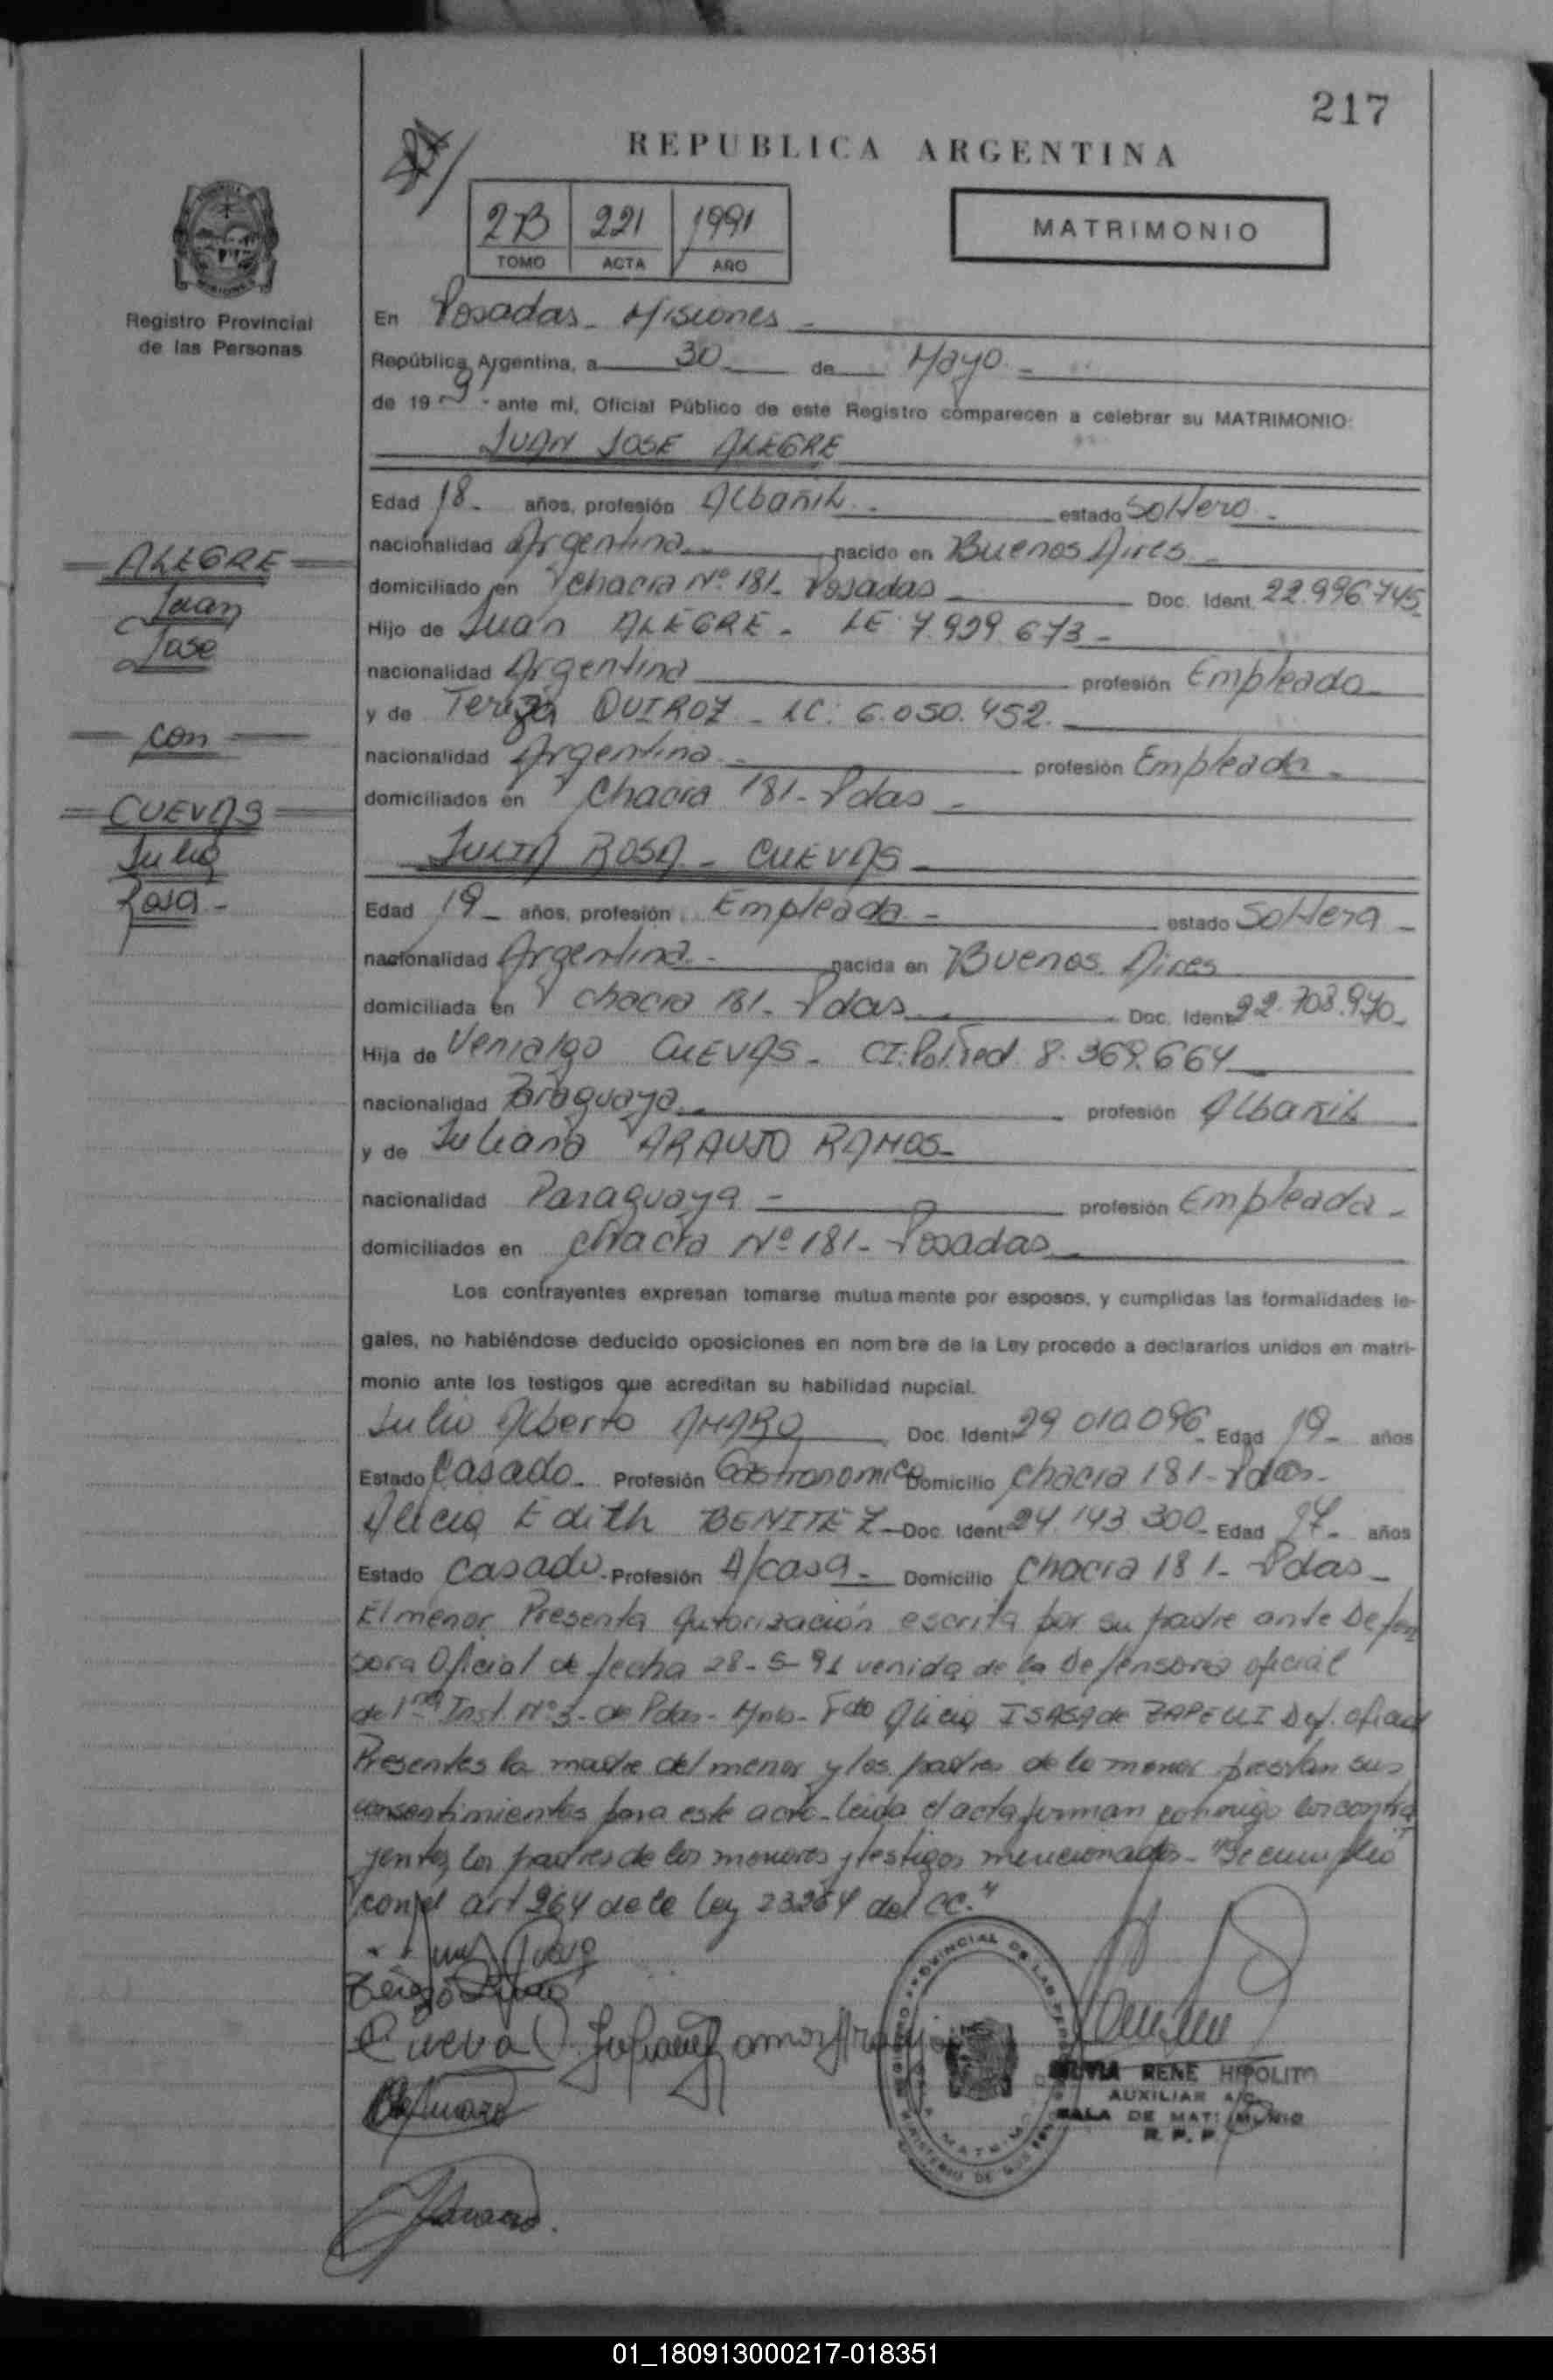 217
REPUBLICA ARGENTINA
2B 221 1991
TOMO ACTA AÑO
MATRIMONIO
Registro Provincial
de las Personas
En Posadas - Misiones -
República Argentina, a 30 de Mayo -
de 19 91 - ante mí, Oficial Público de este Registro comparecen a celebrar su MATRIMONIO:
JUAN JOSE ALEGRE
Edad 18 - años, profesión Albañil - estado Soltero -
nacionalidad Argentina - nacido en Buenos Aires -
domiciliado en Chacra Nº 181 - Posadas - Doc. Ident. 22.996.745
Hijo de Juan ALEGRE - LE 7.929.673 -
nacionalidad Argentina profesión Empleado
y de Tereza QUIROZ - LC: 6.050.452.
nacionalidad Argentina - profesión Empleada -
domiciliados en Chacra 181 - Pdas -
ALEGRE
Juan
Jose
con
CUEVAS
Julia
Rosa -
JULIA ROSA - CUEVAS -
Edad 19 - años, profesión Empleada - estado Soltera -
nacionalidad Argentina - nacida en Buenos Aires
domiciliada en Chacra 181 - Pdas - Doc. Ident. 22.708.940 -
Hija de Venialgo CUEVAS - CI: Pol. Fed 8.369.664
nacionalidad Paraguaya - profesión Albañil
y de Juliana ARAUJO RAMOS -
nacionalidad Paraguaya - profesión Empleada -
domiciliados en Chacra Nº 181 - Posadas
Los contrayentes expresan tomarse mutuamente por esposos, y cumplidas las formalidades le-
gales, no habiéndose deducido oposiciones en nombre de la Ley procedo a declararlos unidos en matri-
monio ante los testigos que acreditan su habilidad nupcial.
Julio Alberto AMARO Doc. Ident. 29 010.096 - Edad 19 - años
Estado Casado - Profesión Gastronomico Domicilio Chacra 181 - Pdas -
Alicia Edith BENITEZ - Doc. Ident. 24.143.300 - Edad 17 - años
Estado Casado - Profesión A/casa - Domicilio Chacra 181 - Pdas -
El menor Presenta Autorización escrita por su padre ante Defen
sora Oficial de fecha 28-5-91 venida de la Defensoria oficial
de 1ra Inst. Nº 3 - de Pdas - Mnes - Fdo Alicia ISASA de ZAPELLI Def. oficial
Presentes la madre del menor y los padres de la menor prestan sus
consentimientos para este acto - Leida el acta firman conmigo los contra
yentes, los padres de los menores y testigos mencionados - "Se cumplió
con el art 264 de la Ley 23264 del CC."
Cueva Juliana Ramos Araujo
SILVIA RENE HIPOLITO
AUXILIAR A/C
SALA DE MATRIMONIO
R. P. P.
01_180913000217-018351